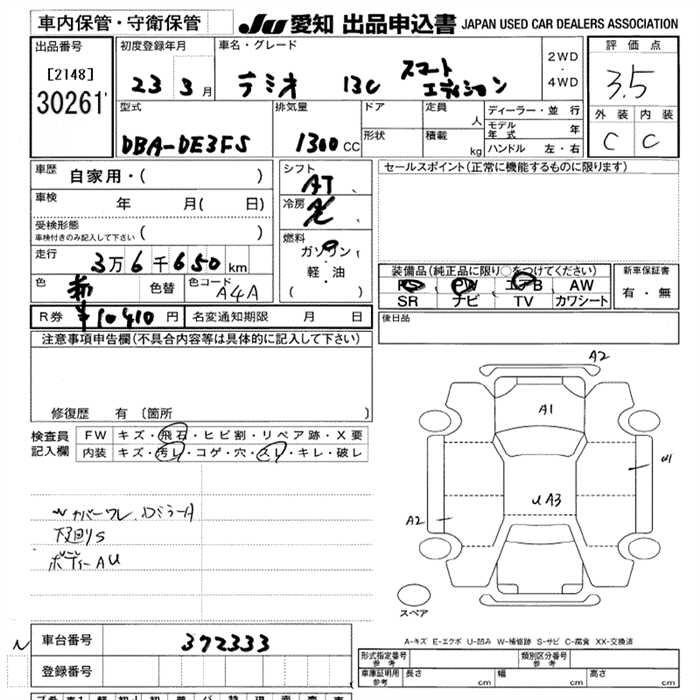 車内保管・守衛保管
JU 愛知 出品申込書 JAPAN USED CAR DEALERS ASSOCIATION
出品番号 初度登録年月 車名・グレード 評価点
[2148] 23 3月 デミオ 13C スマート エディション 2WD・4WD 3.5
30261 外装 内装
型式 排気量 ドア 定員 人 ディーラー・並行
モデル年式 年
DBA-DE3FS 1300 CC 形状 積載 kg ハンドル 左・右 C C
車歴 自家用・( ) シフト AT セールスポイント(正常に機能するものに限ります)
車検 年 月( 日) 冷房
受検形態 車検付きのみ記入して下さい ( ) 燃料
走行 3万6千650km ガソリン・軽・油 ( )
装備品(純正品に限り○をつけてください) 新車保証書
色 色替 色コード A4A PS PW エアB AW 有・無
SR ナビ TV カワシート
R券 ¥10410円 名変通知期限 月 日 後日品
注意事項申告欄(不具合内容等は具体的に記入して下さい)
修復歴 有〔箇所
検査員記入欄 FW キズ・飛石・ヒビ割・リペア跡・X要
内装 キズ・汚レ・コゲ・穴・スレ・キレ・破レ
A2
A1
U1
UA3
A2
カバーワレ
下回りS
ボディーAU
スペア
A-キズ E-エクボ U-凹み W-補修跡 S-サビ C-腐食 XX-交換済
車台番号 372333
登録番号
形式指定番号 参考 類別区分番号 参考
車庫証明用 参考 長さ cm 幅 cm 高さ cm